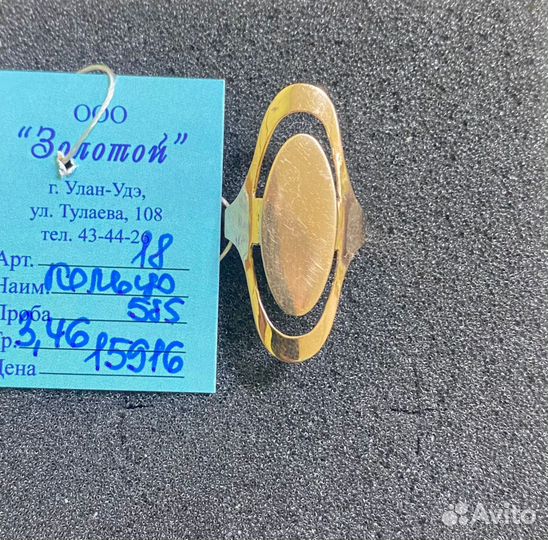 ООО
"Золотой"
г. Улан-Удэ,
ул. Тулаева, 108
тел. 43-44-26
Арт. 18
Наим. кольцо
Проба 585
Гр. 3,46
Цена 15916
Avito